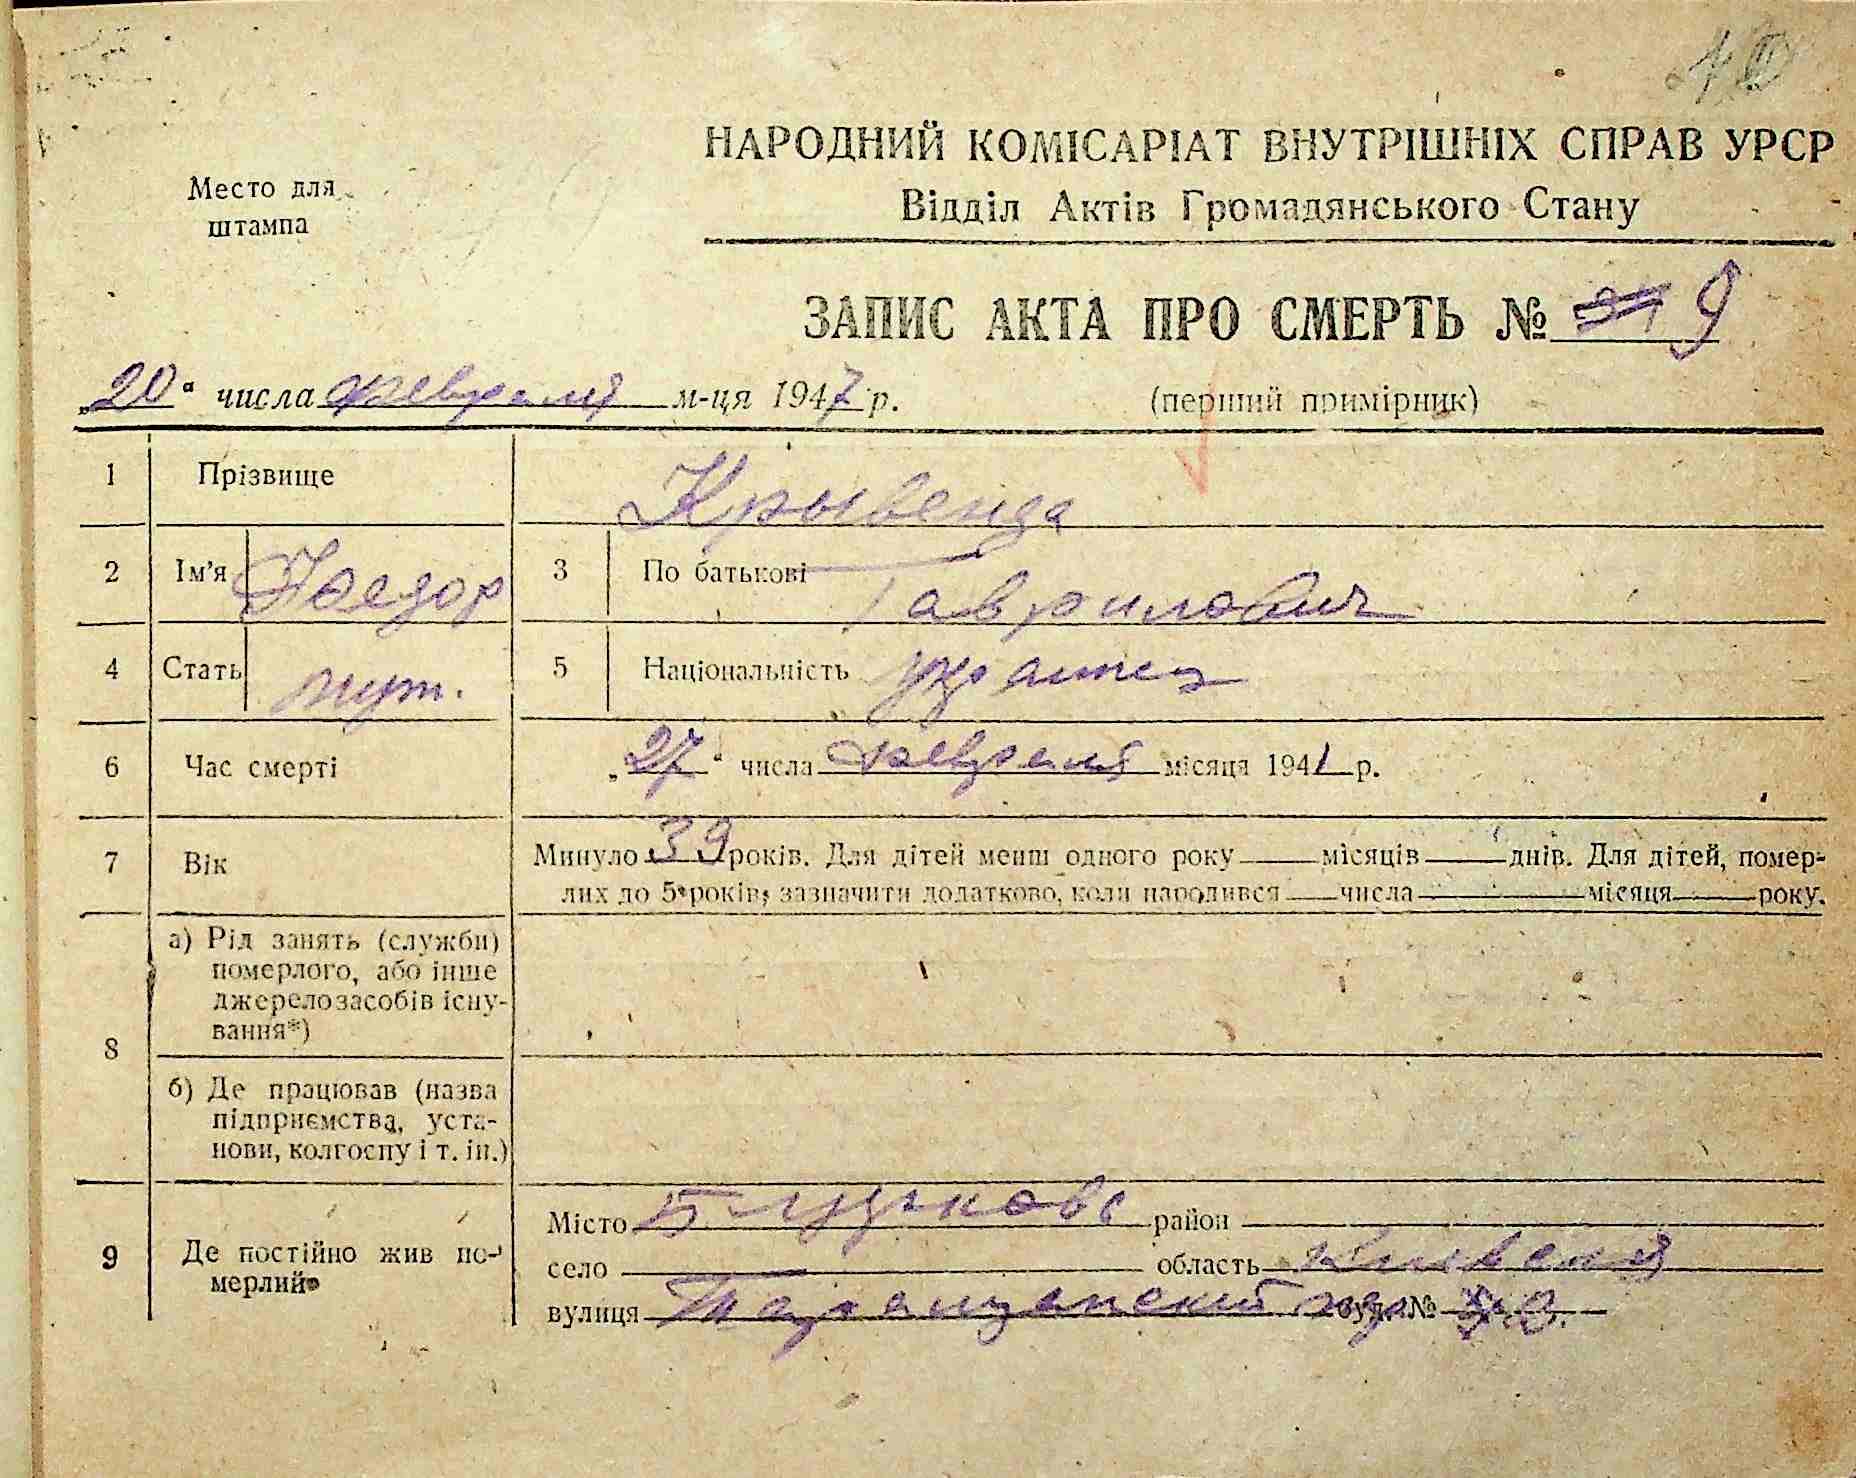 НАРОДНИЙ КОМІСАРІАТ ВНУТРІШНІХ СПРАВ УРСР
Место для
штампа
Відділ Актів Громадянського Стану
ЗАПИС АКТА ПРО СМЕРТЬ № 9
„20“ числа февраля м-ця 1947 р. (перший примірник)
1 Прізвище Крывенда
2 Ім'я Федор 3 По батькові Гаврилович
4 Стать муж. 5 Національність украинец
6 Час смерті „27“ числа февраля місяця 1941 р.
7 Вік Минуло 39 років. Для дітей менш одного року місяців днів. Для дітей, помер-
лих до 5 років, зазначити додатково, коли народився числа місяця року.
8 а) Рід занять (служби)
померлого, або інше
джерело засобів існу-
вання*)
б) Де працював (назва
підприємства, уста-
нови, колгоспу і т. ін.)
9 Де постійно жив по-
мерлий
Місто район
село область Киевская
вулиця Таращанский буд. №